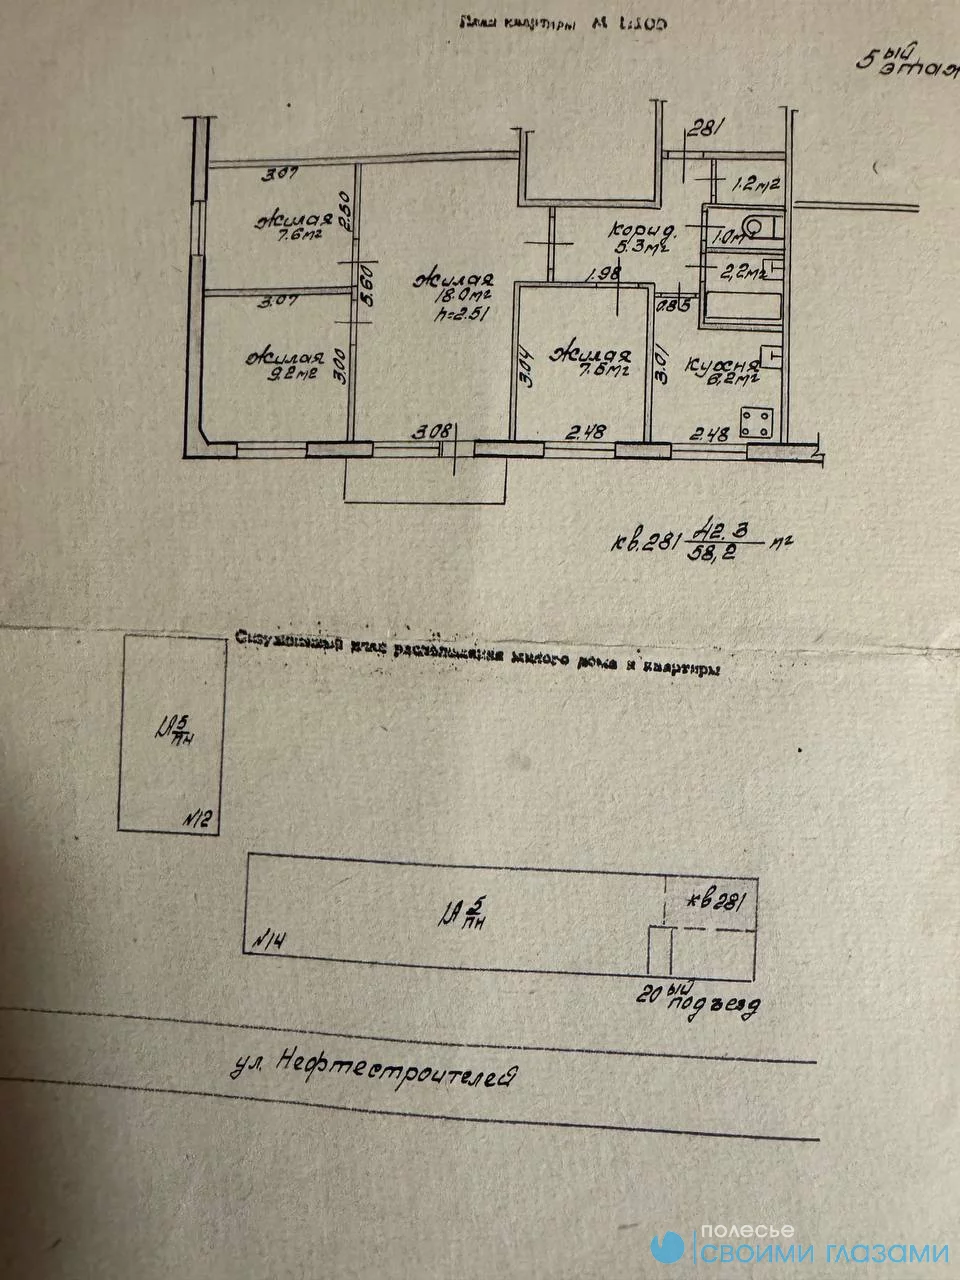 План квартиры М 1:100
5ый этаж
281
3.07
1.2м²
Жилая
7.6м²
2.50
корид.
5.3м²
1.0м²
Жилая
18.0м²
h=2.51
5.60
1.98
2,2м²
3.07
0.85
Жилая
9.2м²
3.00
3.04
Жилая
7.5м²
3.01
кухня
6,2м²
3.08
2.48
2.48
кв.281 42.3/58,2 м²
Ситуационный план расположения жилого дома и квартиры
5
пн
№12
кв 281
5
пн
№14
20ый подъезд
ул. Нефтестроителей
полесье
своими глазами